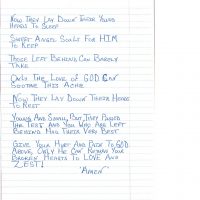 Now They Lay Down Their Young
Heads To Sleep
Sweet Angel Souls For HIM
To Keep
Those Left Behind Can Barely
Take
Only The Love of GOD Can
Soothe This Ache
Now They Lay Down Their Heads
To Rest
Young And Small, But They Passed
The Test And You Who Are Left
Behind Had Their Very Best
Give Your Hurt And Pain To GOD
Above, Only He Can Return Your
Broken Hearts To Love And
ZEST!
"Amen"